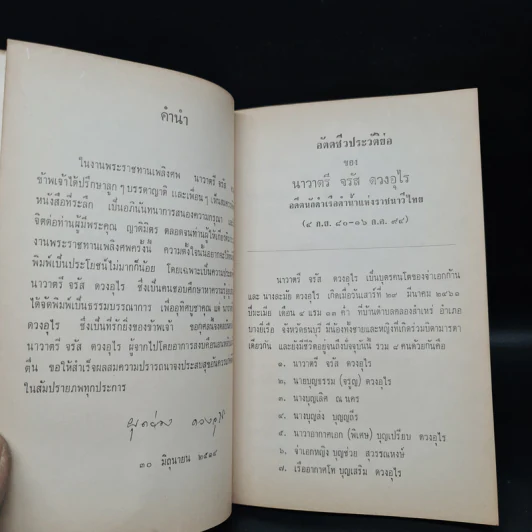 คำนำ
ในงานพระราชทานเพลิงศพ นาวาตรี จรัส
ข้าพเจ้าได้ปรึกษาลูก ๆ บรรดาญาติ และเพื่อน ๆ
หนังสือที่ระลึก เป็นอภินันทนาการสนองความกรุณา
จิตต่อท่านผู้มีพระคุณ ญาติมิตร ตลอดจนท่านผู้ให้เกียรติ
งานพระราชทานเพลิงศพครั้งนี้ ความตั้งใจนั้นอยาก
พิมพ์เป็นประโยชน์ไม่มากก็น้อย โดยเฉพาะเป็นความประสงค์
นาวาตรี จรัส ดวงอุไร ซึ่งเป็นคนชอบศึกษาหาความรู้
ได้จัดพิมพ์เป็นธรรมบรรณาการ เพื่ออุทิศบูชาคุณ แด่
ดวงอุไร ซึ่งเป็นที่รักยิ่งของข้าพเจ้า ขอกุศลผล
นาวาตรี จรัส ดวงอุไร ผู้จากไปโดยอาการสงบ
ตื่น ขอให้สำเร็จผลสมความปรารถนาจงประสบสุข
ในสัมปรายภพทุกประการ
๓๐ มิถุนายน ๒๕๑๙
อัตตชีวประวัติย่อ
ของ
นาวาตรี จรัส ดวงอุไร
อดีตนักดำเรือดำน้ำแห่งราชนาวีไทย
(๔ ก.ย. ๘๐-๑๖ ธ.ค. ๙๔)
นาวาตรี จรัส ดวงอุไร เป็นบุตรคนโตของจ่าเอกก้าน
และ นางละมัย ดวงอุไร เกิดเมื่อวันเสาร์ที่ ๒๙ มีนาคม ๒๔๖๑
ปีมะเมีย เดือน ๔ แรม ๑๓ ค่ำ ที่บ้านตำบลคลองสำเหร่ อำเภอ
บางยี่เรือ จังหวัดธนบุรี มีน้องทั้งชายและหญิงที่เกิดร่วมบิดามารดา
เดียวกัน และยังมีชีวิตอยู่จนถึงปัจจุบันนี้ รวม ๘ คนด้วยกันคือ
๑. นาวาตรี จรัส ดวงอุไร
๒. นายบุญธรรม (จรูญ) ดวงอุไร
๓. นางบุญเลิศ ณ นคร
๔. นางบุญส่ง บุญญถีร
๕. นาวาอากาศเอก (พิเศษ) บุญเปรียบ ดวงอุไร
๖. จ่าเอกหญิง บุญช่วย สุวรรณหงษ์
๗. เรืออากาศโท บุญเสริม ดวงอุไร